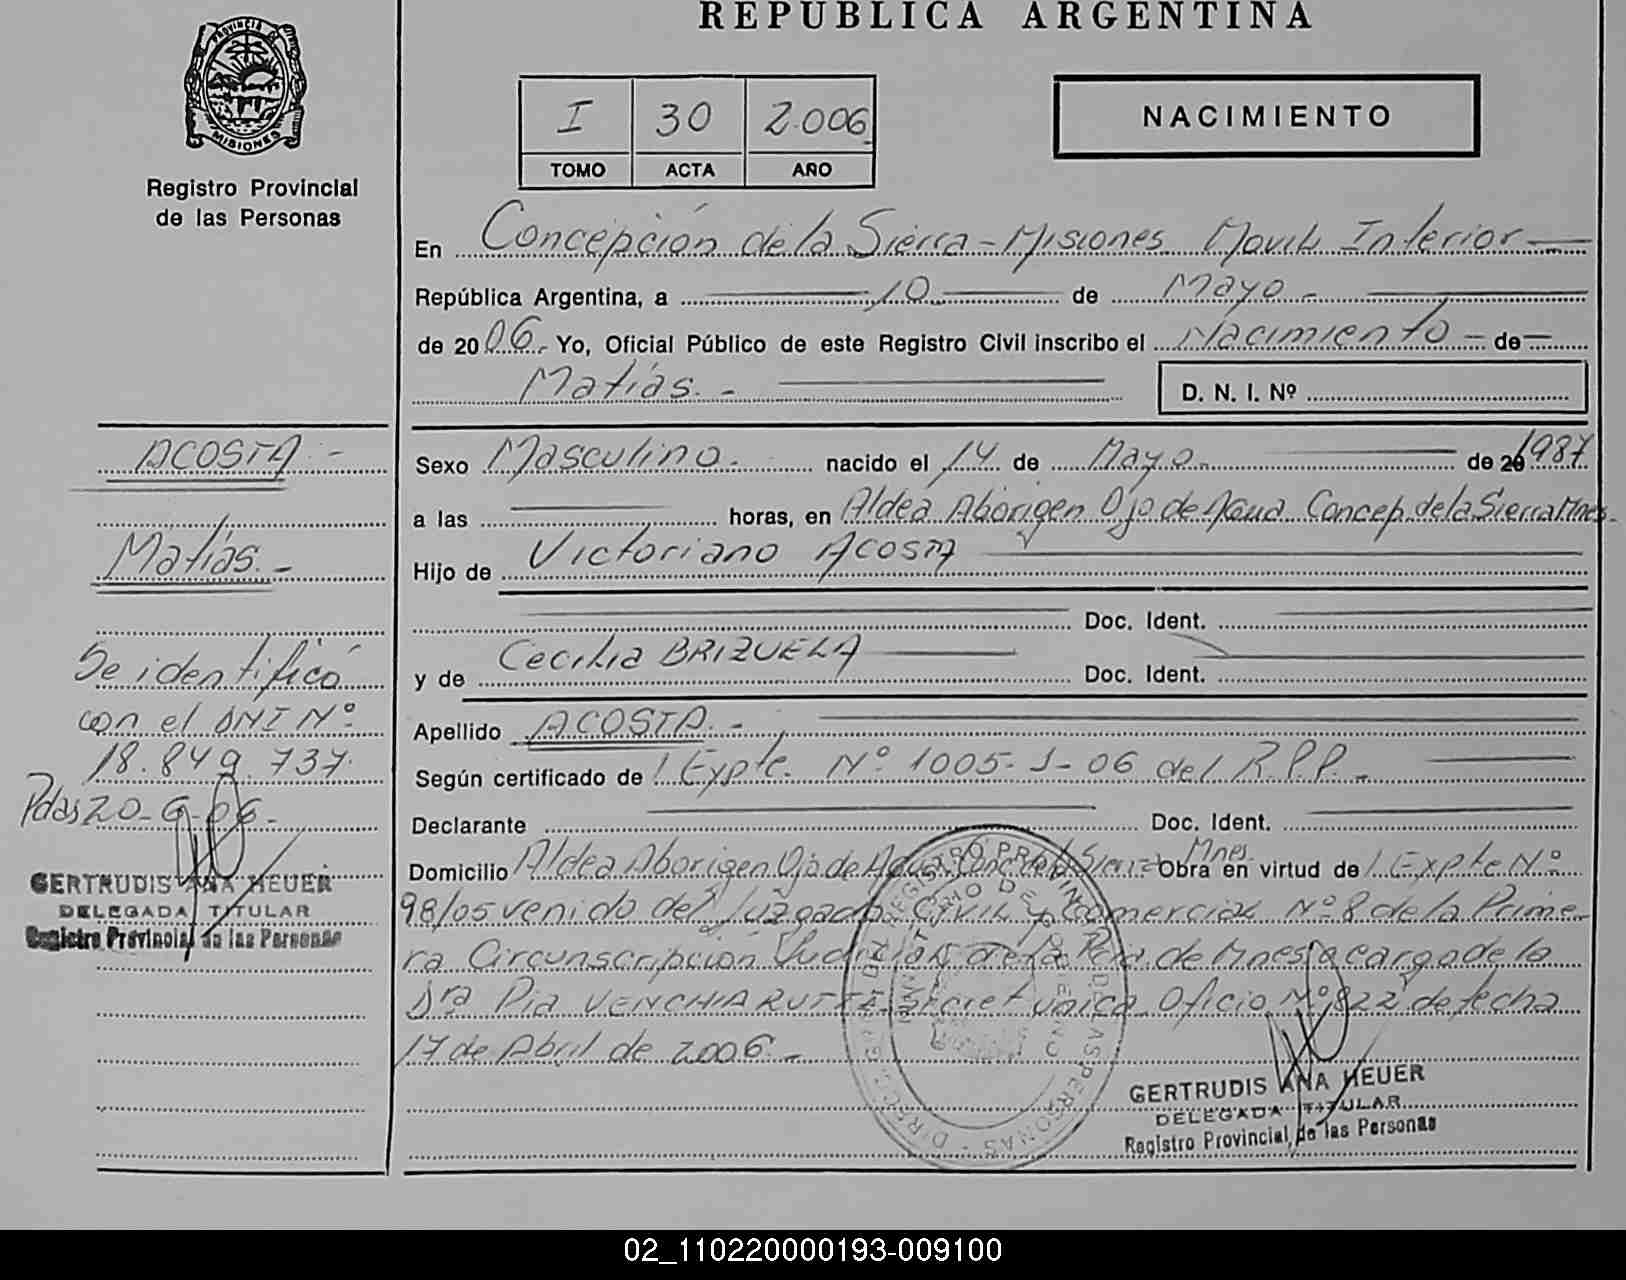 REPUBLICA ARGENTINA
PROVINCIA DE
MISIONES
Registro Provincial
de las Personas
I 30 2.006
TOMO ACTA AÑO
NACIMIENTO
En Concepción de la Sierra - Misiones Movil Interior
República Argentina, a 10 de Mayo -
de 2006. Yo, Oficial Público de este Registro Civil inscribo el Nacimiento - de
Matías. -
D. N. I. Nº
ACOSTA -
Matías. -
Se identificó
con el DNI Nº
18.849.737.
Pdas 20-6-06-
GERTRUDIS ANA HEUER
DELEGADA TITULAR
Registro Provincial de las Personas
Sexo Masculino. nacido el 14 de Mayo. de 20 1987
a las horas, en Aldea Aborigen Ojo de Agua Concep. de la Sierra Mnes.
Hijo de Victoriano ACOSTA
Doc. Ident.
y de Cecilia BRIZUELA Doc. Ident.
Apellido ACOSTA. -
Según certificado de 1 Expte. Nº 1005-J-06 del R.P.P. -
Declarante Doc. Ident.
Domicilio Aldea Aborigen Ojo de Agua Concep. Sierra Mnes. Obra en virtud de 1 Expte Nº
98/05 venido del Juzgado Civil y Comercial Nº 8 de la Prime-
ra Circunscripción Judicial de la Pcia. de Mnes a cargo de la
Dra Pia VENCHIARUTTI Secret Unica Oficio Nº 822 de fecha
17 de Abril de 2006. -
GERTRUDIS ANA HEUER
DELEGADA TITULAR
Registro Provincial de las Personas
02_110220000193-009100